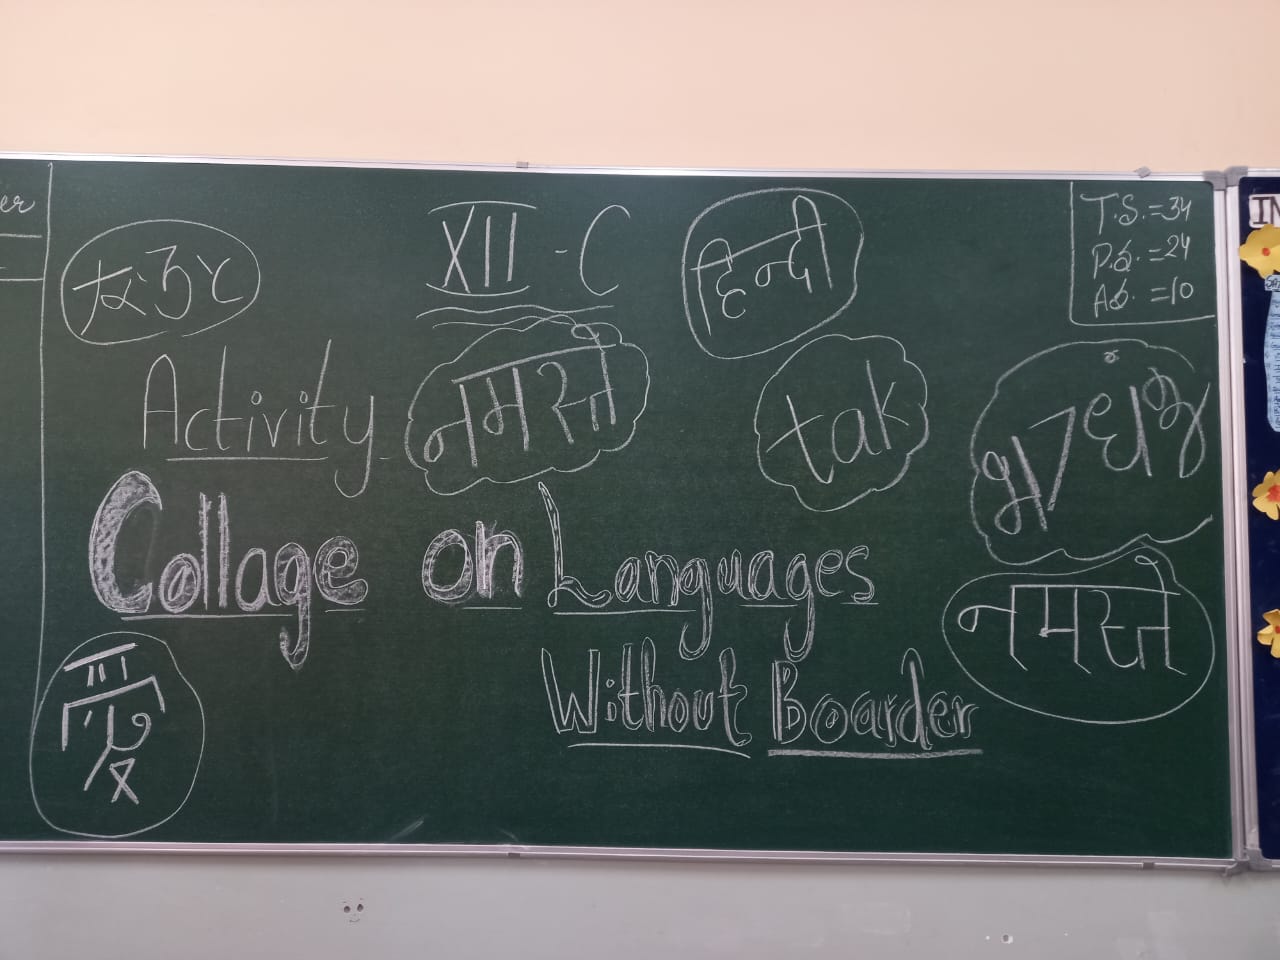 XII - C
हिन्दी
T.S. = 34
P.S. = 24
Ab. = 10
Activity
नमस्ते
tak
Collage on Languages
Without Boarder
नमस्ते